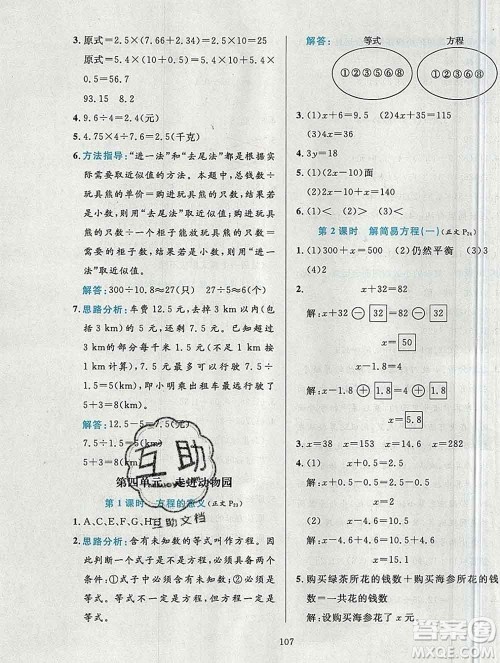 3. 原式=2.5×(7.66+2.34)=2.5×10=25
原式=5.4÷(2.5×0.4)=5.4÷1=5.4
1.6+0.8=2.4
93.15 8.2
4. 9.6÷4=2.4(元)
5. 4.75×4÷7.6=2.5(千克)
6. 方法指导:“进一法”和“去尾法”是根据实
际需要取近似值的方法。本题中,总钱数÷
玩具熊的单价=购进玩具熊的只数,结果若
是小数,则用“去尾法”取近似值。玩具熊的
只数÷一个柜子能放玩具熊的只数=购进
的柜子数,结果若是小数,则用“进一法”取
近似值。
解答:300÷10.8≈27(只)
7. 思路分析:车费 12.5 元,还超过 5 元,说明
这辆出租车行驶了不止 3 km。先求超过
3 km的部分每千米 1.5 元,7.5 元
里面有几个 1.5 元,最多可以行驶几千米,
再加上 3 km,即小明乘出租车最远行驶了
5+3=8(km)
解答:12.5-5=7.5(元)
7.5÷1.5=5(km)
5+3=8(km)
第四单元 走进动物园
第 1 课时 方程的意义(正文 P₂₃)
1. A、C、E、F、G、H、
2. 思路分析:含有未知数的等式叫作方程。
判断一个式子是不是方程,必须具备两个
条件:①式子中必须含有未知数;②必须是
等式。
解答: 等式 方程
①②③⑤⑥⑧ ①②③⑥⑧
3. (1)x+6=9.5 (2)x-35=114
(3)4x=36
4. 3y=18
5. (1)(2x-10)面 (2)2x-10=38
6. (1)< (2)= (3)> (4)=
第 2 课时 解简易方程(一)(正文 P₂₄)
1. (1)300+x=500 (2)仍然平衡 (3)3
(4)4
2. x+32=82
解:x+32 - 32 =82 - 32
x=50
x-1.8=4
解:x-1.8 + 1.8 =4 + 1.8
x= 5.8
3. x=0.58 x=38
4. x+0.5=2.4
解:x=2.4-0.5
x=1.9
x-4.6=4.6
解:x=4.6+4.6
x=9.2
5. 购买绿茶所花的钱数+购买海参所花的钱数
=一共花的钱数
解:设购买海参花了 x 元。
107
互助
互助文档
答案圈
MXQE.COM